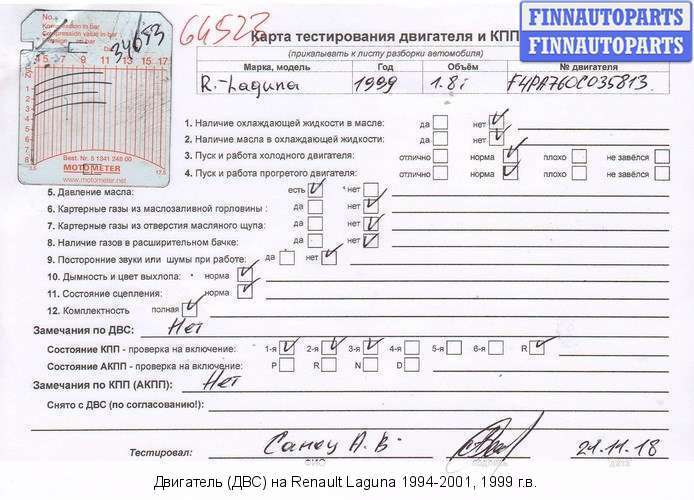 No.
Kompression in bar
Compression value in bar
34053
64523
FINNAUTOPARTS
FINNAUTOPARTS
Карта тестирования двигателя и КПП
(прикалывать к листу разборки автомобиля)
Марка, модель Год Объём № двигателя
R.-Laguna 1999 1.8i F4PA760C035813
1. Наличие охлаждающей жидкости в масле: да нет
2. Наличие масла в охлаждающей жидкости: да нет
3. Пуск и работа холодного двигателя: отлично норма плохо не завёлся
4. Пуск и работа прогретого двигателя: отлично норма плохо не завёлся
Best. Nr. 5 1341 248 00
3,5 17,5
MOTOMETER
www.motometer.net
5. Давление масла: есть нет
6. Картерные газы из маслозаливной горловины : да нет
7. Картерные газы из отверстия масляного щупа: да нет
8. Наличие газов в расширительном бачке: да нет
9. Посторонние звуки или шумы при работе: да нет
10. Дымность и цвет выхлопа: норма
11. Состояние сцепления: норма
12. Комплектность полная
Замечания по ДВС: Нет
Состояние КПП - проверка на включение: 1-я 2-я 3-я 4-я 5-я 6-я R
Состояние АКПП - проверка на включение: P R N D
Замечания по КПП (АКПП): Нет
Снято с ДВС (по согласованию!):
Тестировал: Санец А.В. 21.11.18
ФИО подпись дата
Двигатель (ДВС) на Renault Laguna 1994-2001, 1999 г.в.